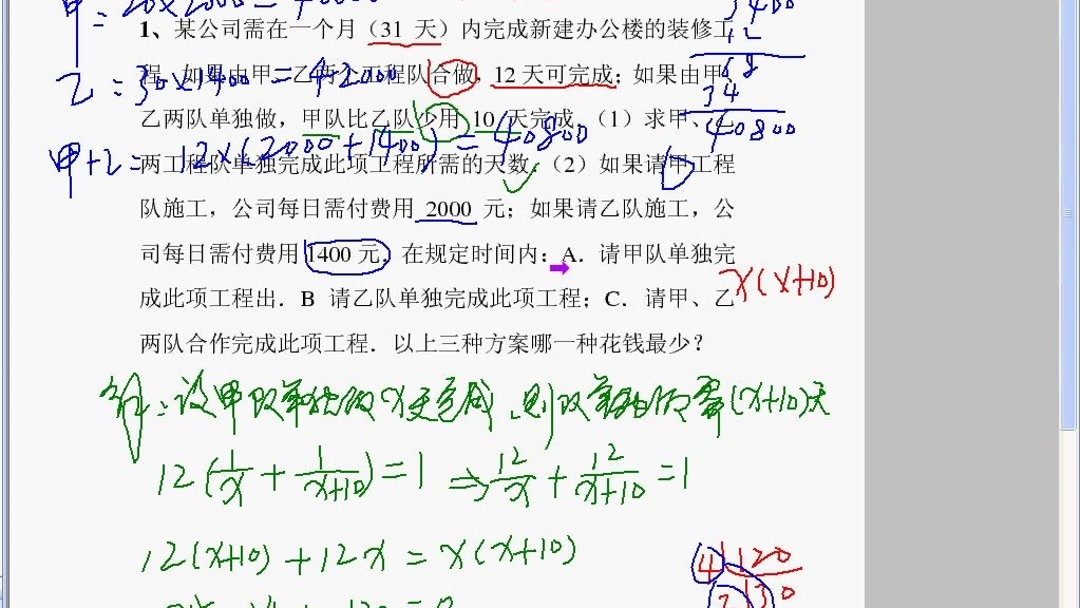 甲=20×2000=40000
1、某公司需在一个月（31 天）内完成新建办公楼的装修工
程．如果由甲、乙两个工程队合做，12 天可完成；如果由甲、
乙两队单独做，甲队比乙队少用 10 天完成．（1）求甲、乙
两工程队单独完成此项工程所需的天数．（2）如果请甲工程
队施工，公司每日需付费用 2000 元；如果请乙队施工，公
司每日需付费用 1400 元．在规定时间内：A．请甲队单独完
成此项工程出．B 请乙队单独完成此项工程；C．请甲、乙
两队合作完成此项工程．以上三种方案哪一种花钱最少？
乙=30×1400=42000
甲+乙=12×(2000+1400)=40800
3400
12
68
34
40800
x(x+10)
解：设甲队单独做x天完成，则乙队单独做需(x+10)天
12(1/x+1/(x+10))=1 ⇒ 12/x+12/(x+10)=1
12(x+10)+12x=x(x+10)
4 120
130